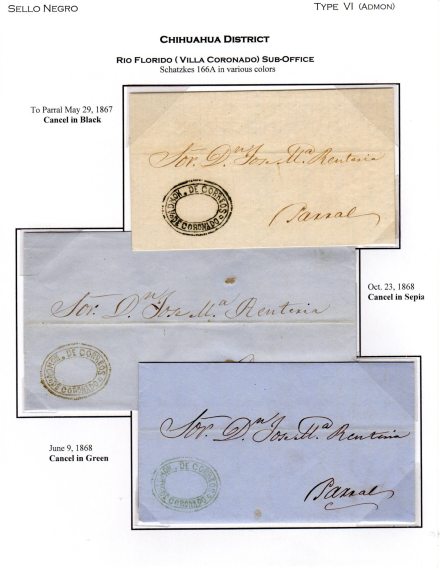 SELLO NEGRO
TYPE VI (ADMON)
CHIHUAHUA DISTRICT
RIO FLORIDO ( VILLA CORONADO) SUB-OFFICE
Schatzkes 166A in various colors
To Parral May 29, 1867
Cancel in Black
Sor. Dn Jose Ma. Renteria
ADMON. DE CORREOS
DE CORONADO
Parral
Oct. 23, 1868
Cancel in Sepia
Sor. Dn Jose Ma. Renteria
ADMON. DE CORREOS
DE CORONADO
June 9, 1868
Cancel in Green
Sor. Dn Jose Ma. Renteria
ADMON. DE CORREOS
DE CORONADO
Parral